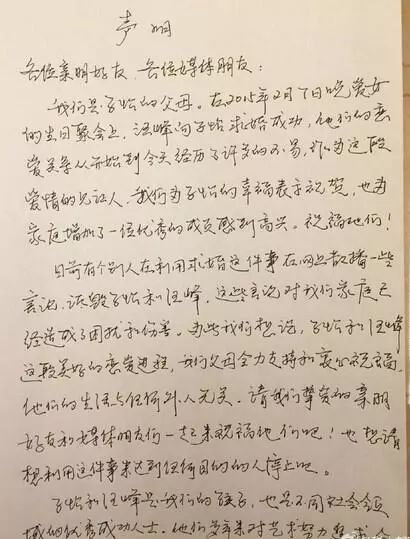 声明
各位亲朋好友、各位媒体朋友:
我们是子怡的父母。在2015年2月7日晚爱女
的生日聚会上,汪峰向子怡求婚成功,他们的恋
爱关系从开始到今天经历了许多的不易,作为这段
爱情的见证人,我们为子怡的幸福表示祝贺,也为
家庭增加了一位优秀的成员感到高兴。祝福他们!
目前有个别人在利用求婚这件事在网上散播一些
言论,诋毁子怡和汪峰,这些言论对我们家庭已
经造成了困扰和伤害。为此我们想说,子怡和汪峰
这段美好的恋爱进程,我们父母全力支持和衷心祝福,
他们的生活与任何外人无关。请我们挚爱的亲朋
好友和媒体朋友们一起来祝福他们吧!也想请
想利用这件事来达到任何目的的人停止吧。
子怡和汪峰是我们的孩子,也是不同社会
域的优秀成功人士。他们多年来对艺术努力追求